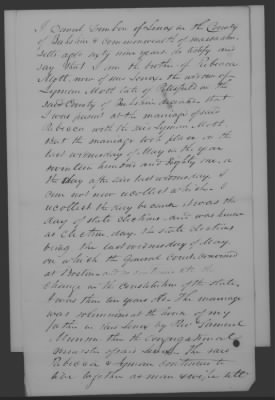 I Daniel of Lenox in the County
of Berkshire & Commonwealth of Massachu
setts aged sixty nine years do testify and
say that I am the brother of Rebecca
Mott, now of said Lenox, the widow of
Lyman Mott late of Pittsfield in the
said County of Berkshire deceased that
I was present at the marriage of said
Rebecca with the said Lyman Mott
that the marriage took place on the
last Wednesday of May in the year
seventeen hundred and Eighty
the day after said last Wednesday I
can not now recollect which. I
recollect the day because it was the
day of state elections and was known
as Election day the state elections
being the last Wednesday of May
on which the General Court convened
at Boston
change in the constitution of the state.
I was then ten years old. The marriage
was solemnized at the house of my
father in said Lenox by Rev Samuel
Munson then the congregational
minister of said Lenox. The said
Rebecca & Lyman continued to
live together as man & wife till